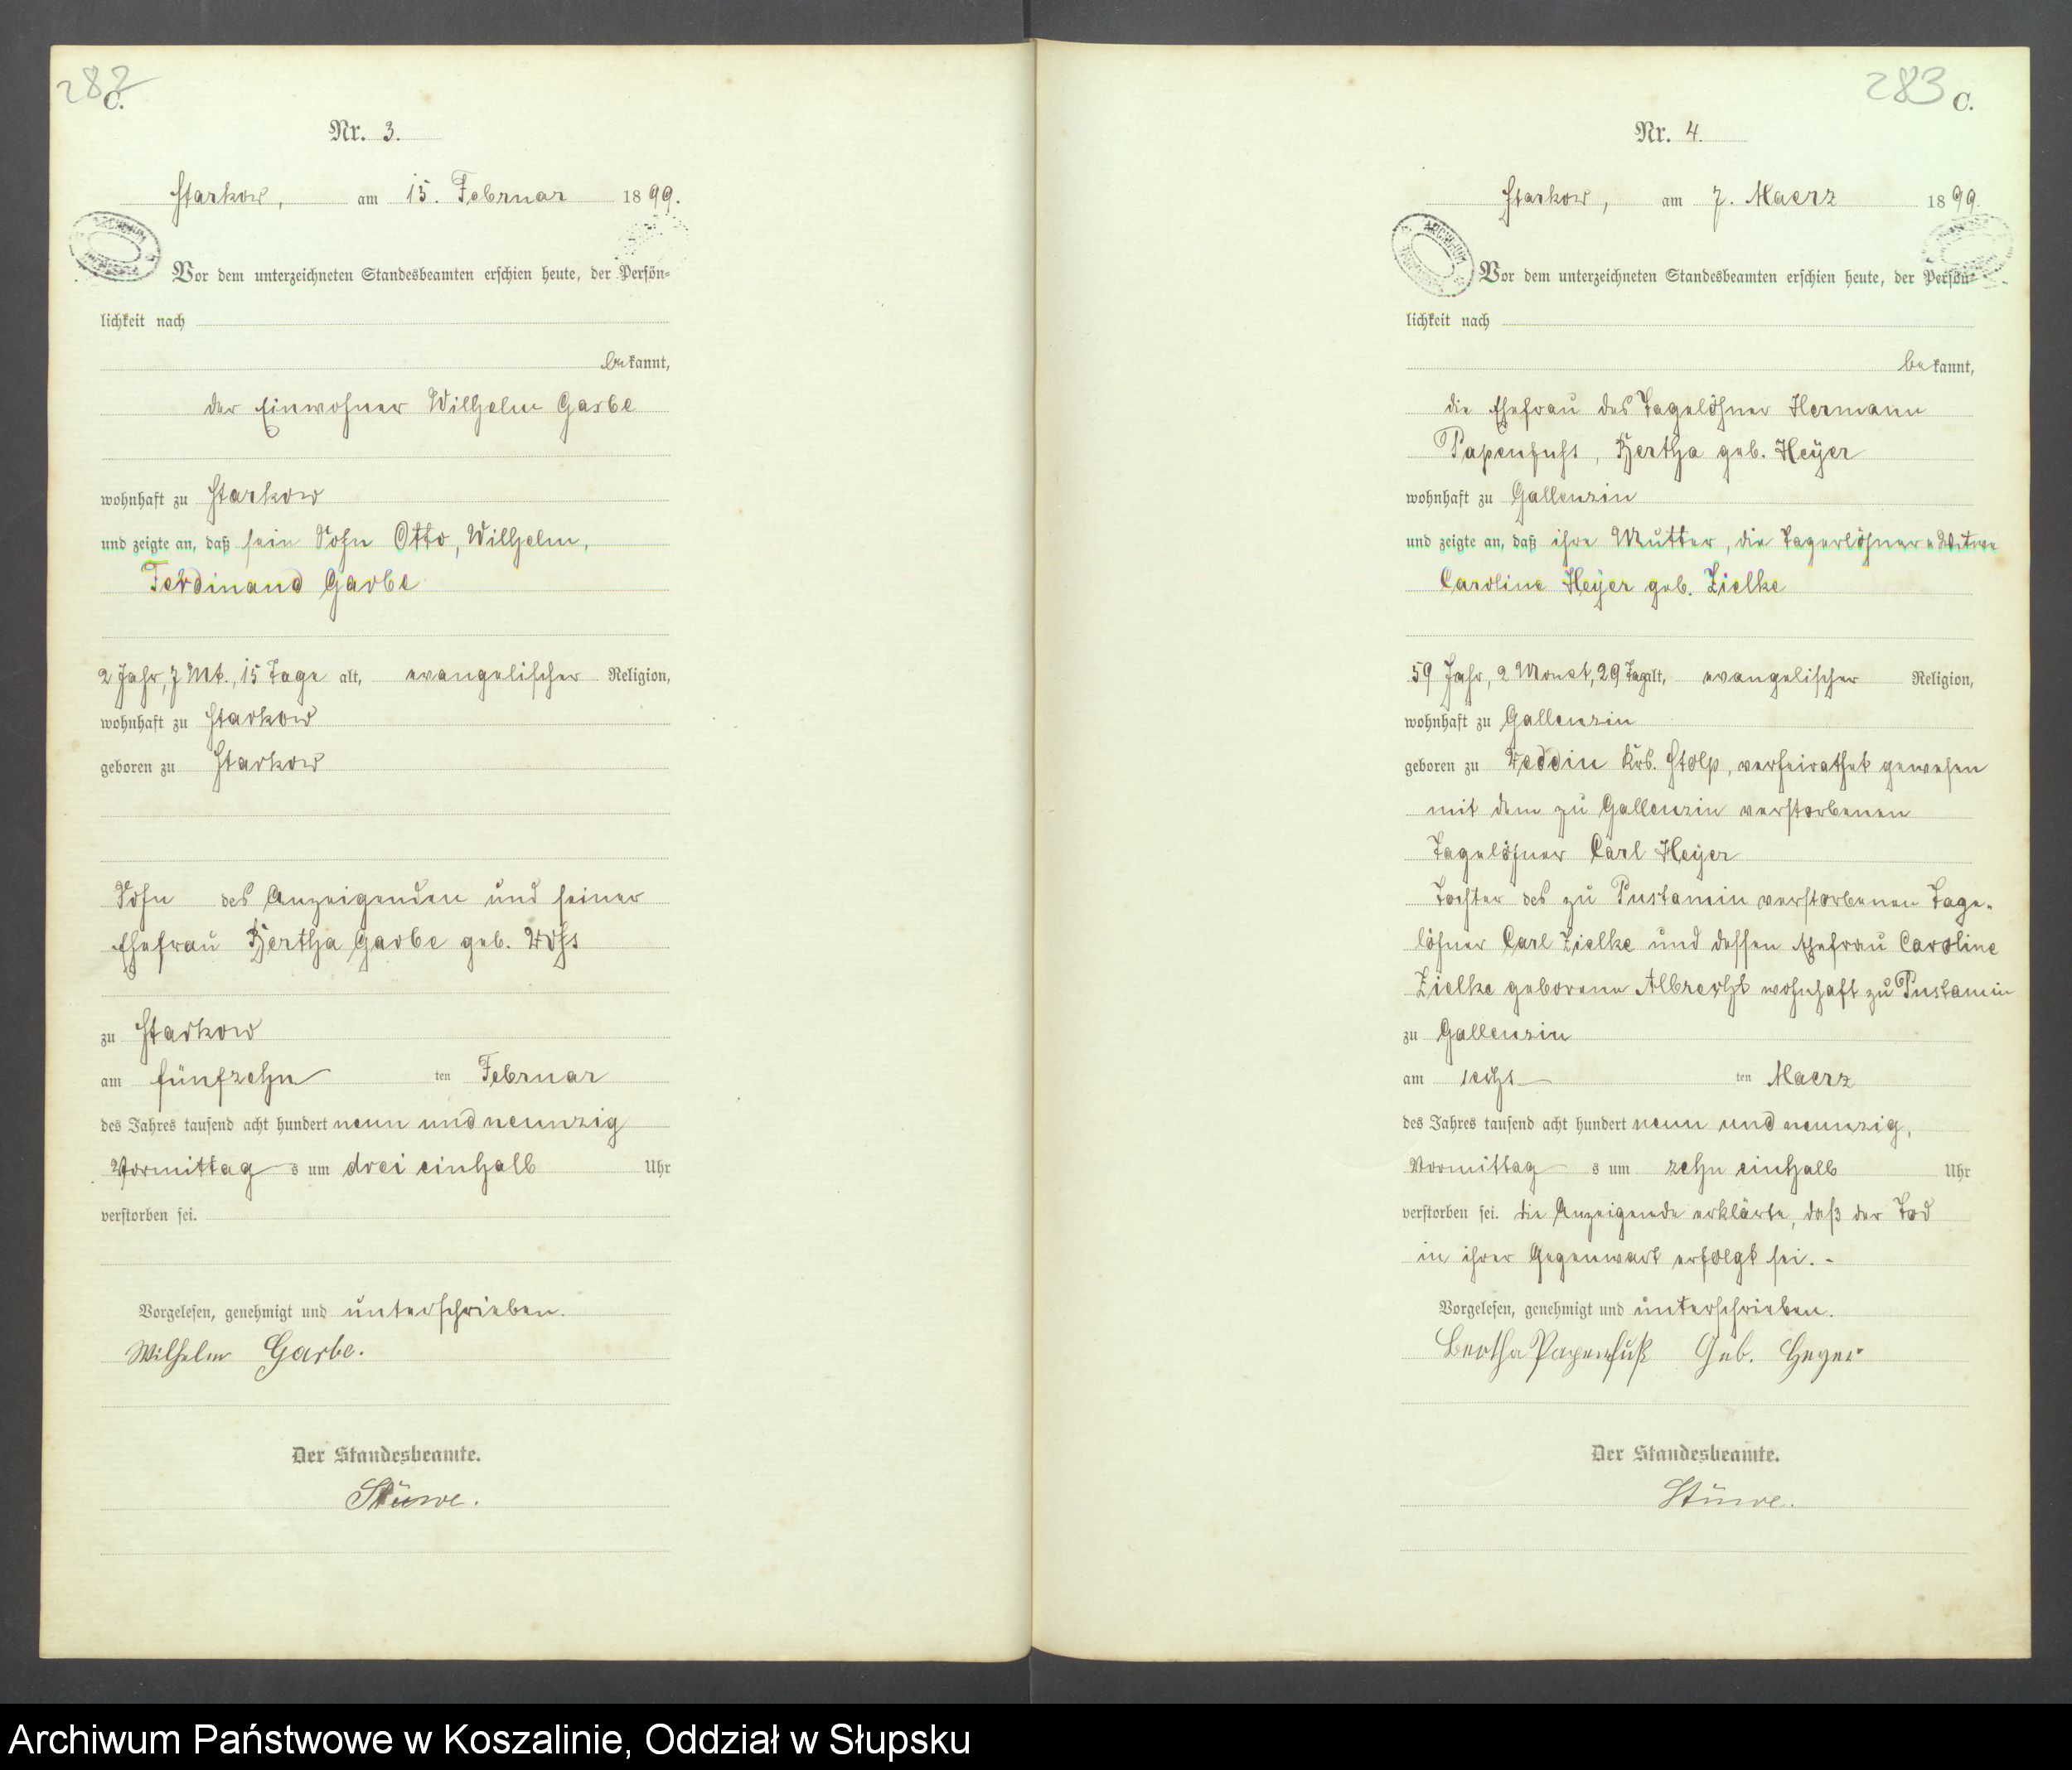 282
C.
Nr. 3.
Starkow, am 15. Februar 1899.
Vor dem unterzeichneten Standesbeamten erschien heute, der Persön-
lichkeit nach
bekannt,
der Einwohner Wilhelm Garbe
wohnhaft zu Starkow
und zeigte an, daß sein Sohn Otto, Wilhelm,
Ferdinand Garbe
2 Jahr, 7 Mt., 15 Tage alt, evangelischer Religion,
wohnhaft zu Starkow
geboren zu Starkow
Sohn des Anzeigenden und seiner
Ehefrau Bertha Garbe geb. Voss
zu Starkow
am fünfzehn ten Februar
des Jahres tausend acht hundert neun und neunzig
Vormittags um drei einhalb Uhr
verstorben sei.
Vorgelesen, genehmigt und unterschrieben.
Wilhelm Garbe.
Der Standesbeamte.
Stüwe.
283
C.
Nr. 4.
Starkow, am 7. Maerz 1899.
ARCHIWUM
Vor dem unterzeichneten Standesbeamten erschien heute, der Persön-
lichkeit nach
bekannt,
die Ehefrau des Tagelöhner Hermann
Papenfuhs, Bertha geb. Heyer
wohnhaft zu Gallenzin
und zeigte an, daß ihre Mutter, die Witwe
Caroline Heyer geb. Zielke
59 Jahr, 2 Monat, 29 Tag alt, evangelischer Religion,
wohnhaft zu Gallenzin
geboren zu Veddin Krs. Stolp, verheirathet gewesen
mit dem zu Gallenzin verstorbenen
Tagelöhner Carl Heyer
Tochter des zu Pustamin verstorbenen Tage-
löhner Carl Zielke und dessen Ehefrau Caroline
Zielke geborene Albrecht wohnhaft zu Pustamin
zu Gallenzin
am sechs ten Maerz
des Jahres tausend acht hundert neun und neunzig,
Vormittags um zehn einhalb Uhr
verstorben sei. Die Anzeigende erklärte, daß der Tod
in ihrer Gegenwart erfolgt sei. -
Vorgelesen, genehmigt und unterschrieben.
Bertha Papenfuß Geb. Heyer
Der Standesbeamte.
Stüwe.
Archiwum Państwowe w Koszalinie, Oddział w Słupsku